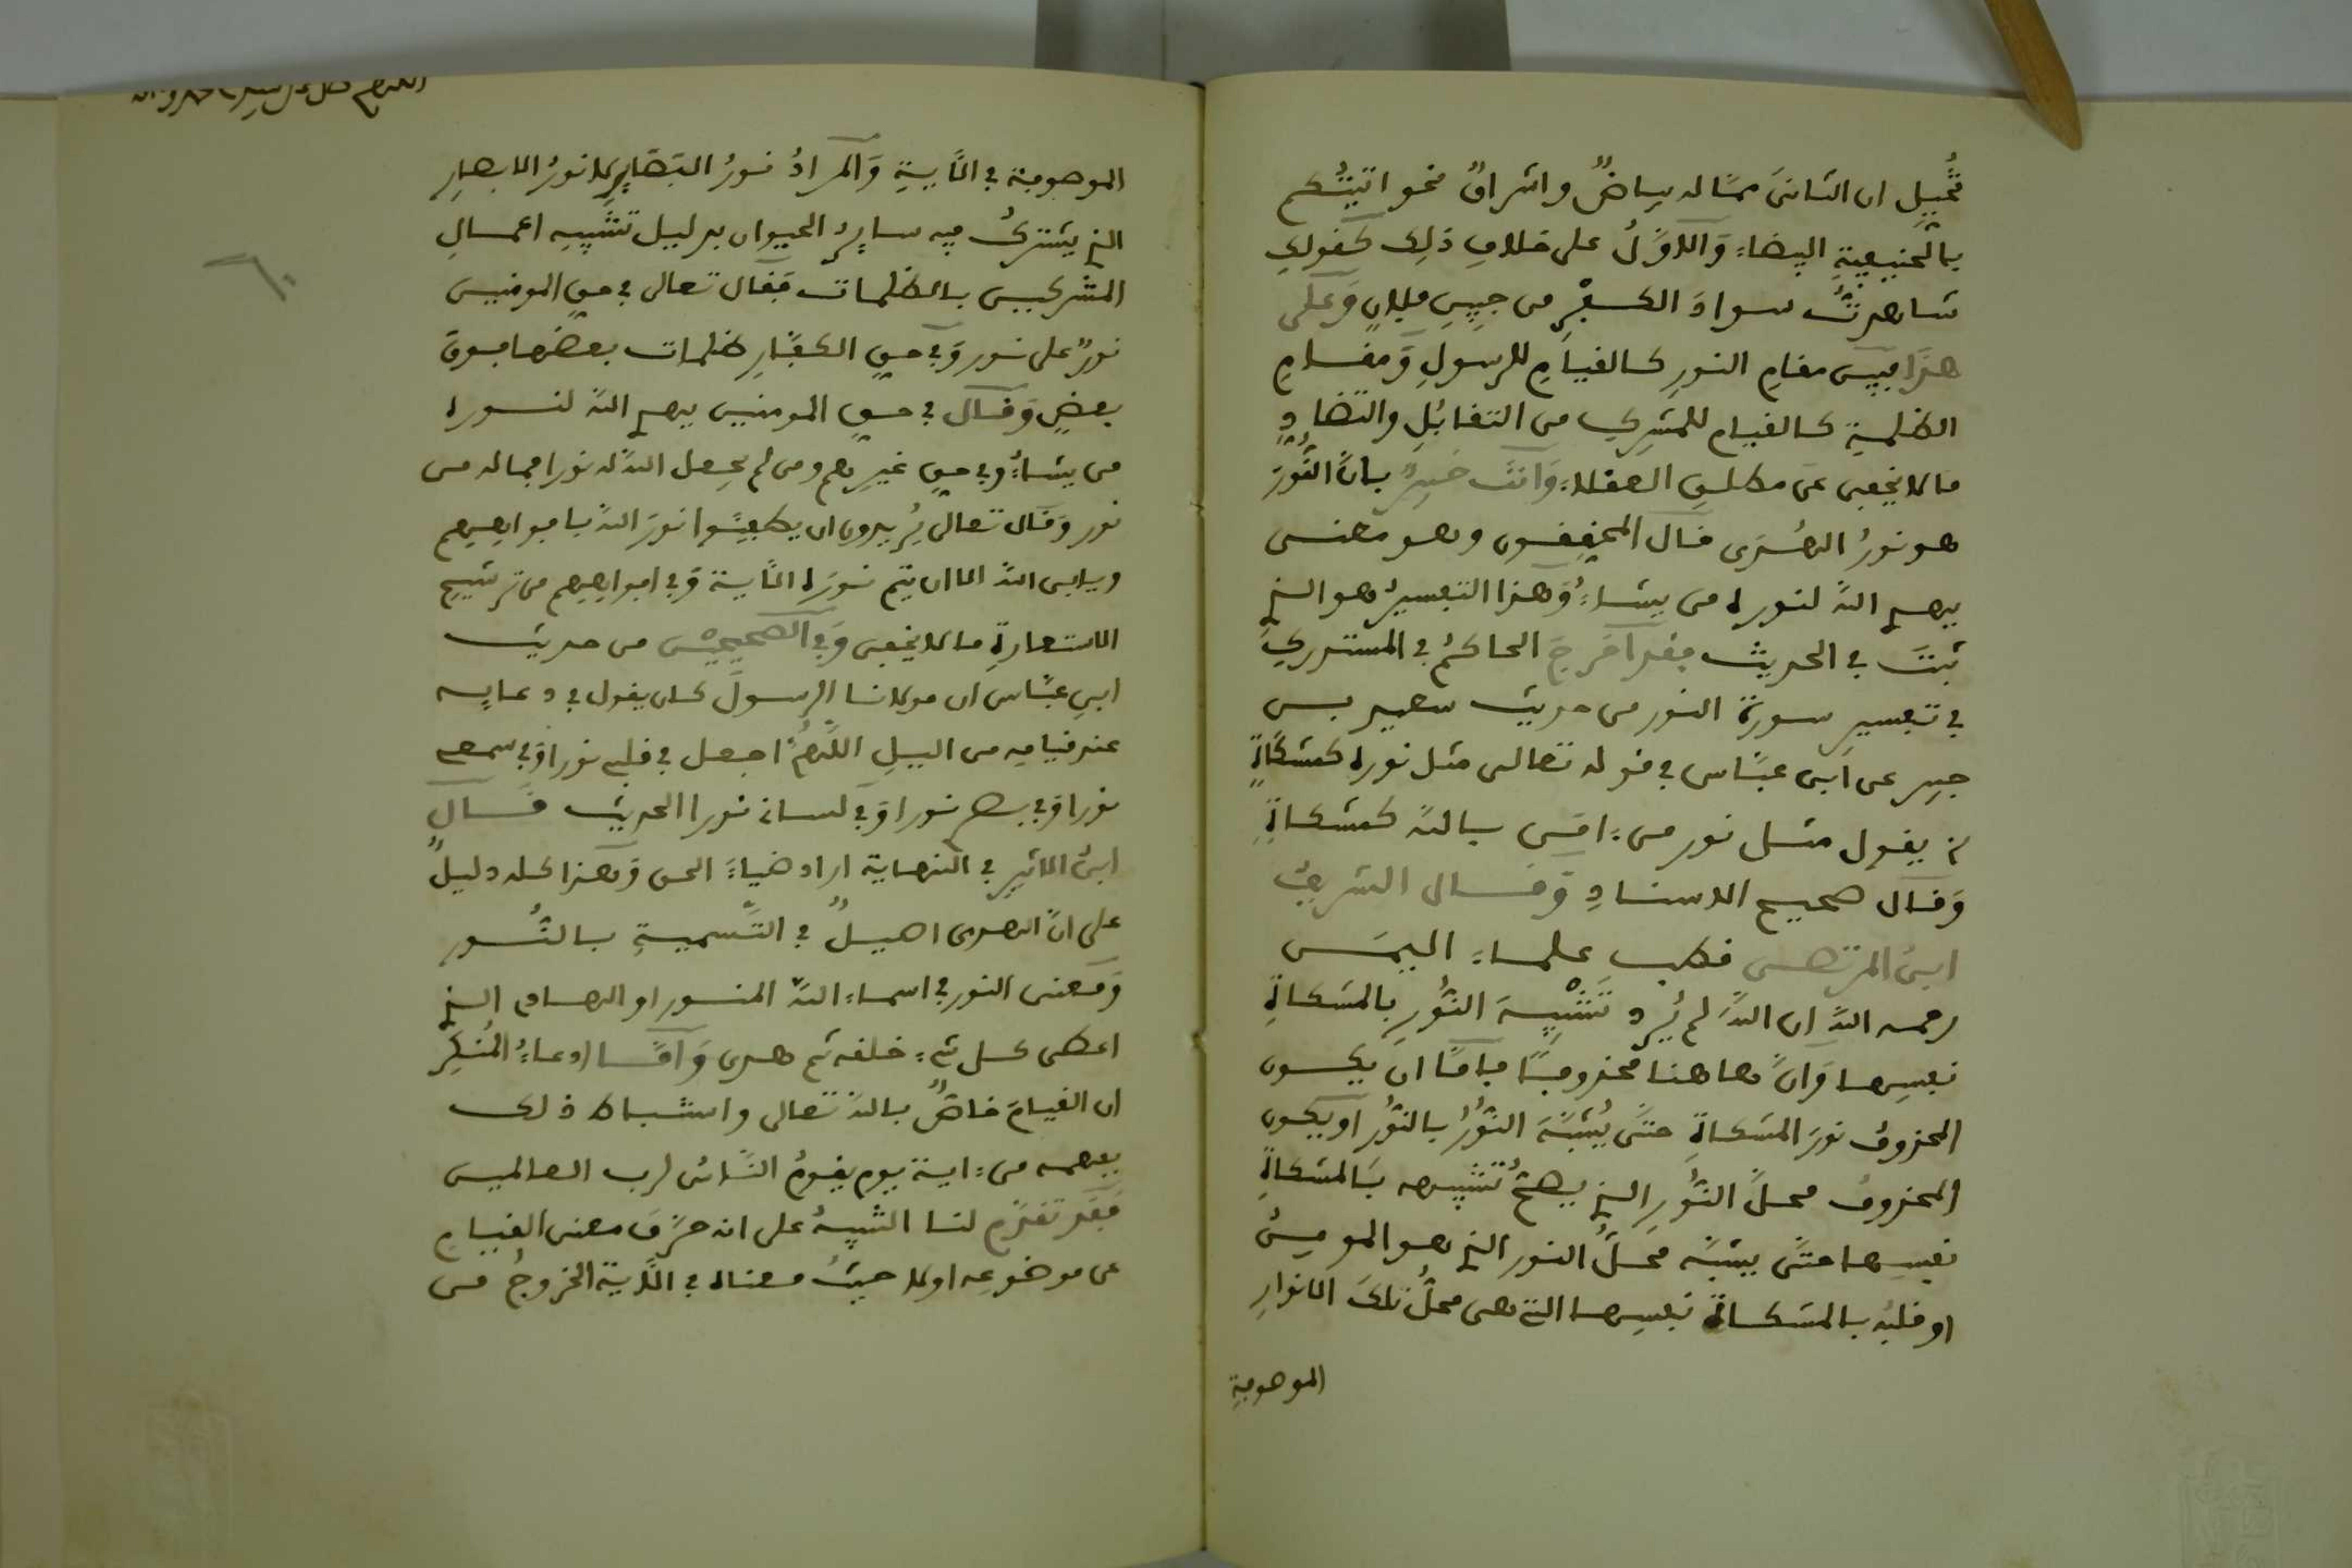 تخييل ان الثانى مما له بياض واشراق نحو اتيتكم
بالحنيفية البيضاء والاول على خلاف ذلك كقولك
شاهدت سواد الكفر من جبين فلان وعلى
هذا فبين مقام النور كالقيام للرسول ومقام
الظلمة كالقيام للمشرك من التقابل والتضاد
ما لا يخفى عن مطلق العقلاء وانت خبير بان النور
هو نور الهدى قال المحققون وهو معنى
يهدي الله لنوره من يشاء وهذا التفسير هو الذي
ثبت في الحديث فقد اخرج الحاكم في المستدرك
في تفسير سورة النور من حديث سعيد بن
جبير عن ابن عباس في قوله تعالى مثل نوره كمشكاة
يقول مثل نور من ءامن بالله كمشكاة
وقال صحيح الاسناد وقال الشريف
ابن المرتضى قطب علماء اليمن
رحمه الله ان الله لم يرد تشبيه النور بالمشكاة
نفسها وان هاهنا محذوفا فاما ان يكون
المحذوف نور المشكاة حتى يشبه النور بالنور او يكون
المحذوف محل النور الذي يصح تشبيهه بالمشكاة
نفسها حتى يشبه محل النور الذي هو المومن
او قلبه بالمشكاة نفسها التي هى محل تلك الانوار
الموهوبة
الموهوبة في الاية والمراد نور البصاير لا نور الابصار
الذي يشترك فيه ساير الحيوان بدليل تشبيه اعمال
المشركين بالظلمات فقال تعالى في حق المومنين
نور على نور وفي حق الكفار ظلمات بعضها فوق
بعض وقال في حق المومنين يهدي الله لنوره
من يشاء وفي حق غيرهم ومن لم يجعل الله له نورا فما له من
نور وقال تعالى يريدون ان يطفئوا نور الله بافواههم
ويابى الله الا ان يتم نوره الاية وفي افواههم من ترشيح
الاستعارة ما لا يخفى وفي الصحيحين من حديث
ابن عباس ان مولانا الرسول كان يقول في دعايه
عند قيامه من اليل اللهم اجعل في قلبي نورا وفي سمعي
نورا وفي بصري نورا وفي لساني نورا الحديث قال
ابن الاثير في النهاية اراد ضياء الحق وهذا كله دليل
على ان الهدى اصيل في التسمية بالنور
ومعنى النور في اسماء الله المنور او الهادي الذي
اعطى كل شيء خلقه ثم هدى واما ادعاء المنكر
ان القيام خاص بالله تعالى واستنباط ذلك
بفهمه من ءاية يوم يقوم الناس لرب العالمين
فقد تقدم لنا التنبيه على انه حرف معنى القيام
عن موضوعه اولا حيث معناه في الاية الخروج من